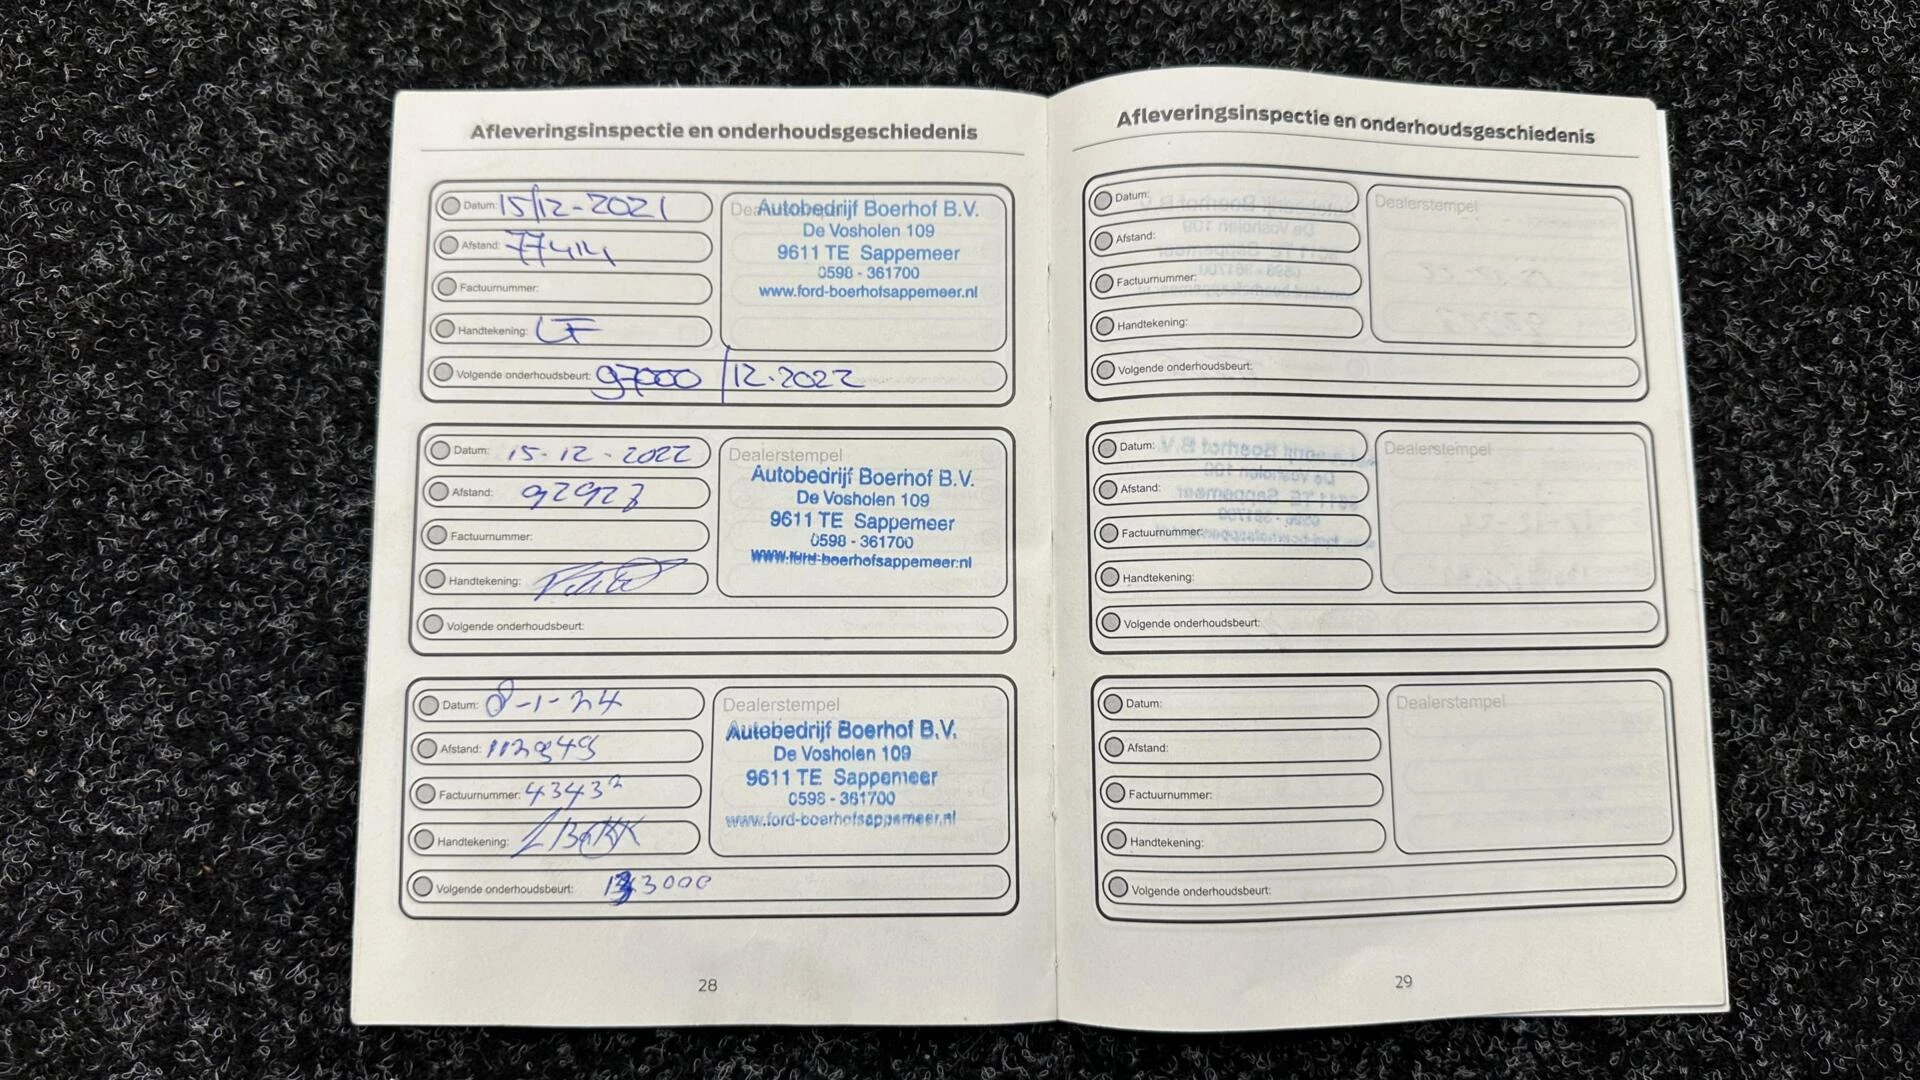 Afleveringsinspectie en onderhoudsgeschiedenis
Datum: 15/12-2021
Afstand: 77414
Factuurnummer:
Handtekening: LF
Volgende onderhoudsbeurt: 97000 / 12.2022
Autobedrijf Boerhof B.V.
De Vosholen 109
9611 TE Sappemeer
0598 - 361700
www.ford-boerhofsappemeer.nl
Datum: 15-12-2022
Afstand: 92923
Factuurnummer:
Handtekening:
Volgende onderhoudsbeurt:
Dealerstempel
Autobedrijf Boerhof B.V.
De Vosholen 109
9611 TE Sappemeer
0598 - 361700
www.ford-boerhofsappemeer.nl
Datum: 8-1-24
Afstand:
Factuurnummer: 43432
Handtekening:
Volgende onderhoudsbeurt: 133000
Dealerstempel
Autobedrijf Boerhof B.V.
De Vosholen 109
9611 TE Sappemeer
0598 - 361700
www.ford-boerhofsappemeer.nl
28
Afleveringsinspectie en onderhoudsgeschiedenis
Datum:
Afstand:
Factuurnummer:
Handtekening:
Volgende onderhoudsbeurt:
Dealerstempel
Datum:
Afstand:
Factuurnummer:
Handtekening:
Volgende onderhoudsbeurt:
Dealerstempel
Datum:
Afstand:
Factuurnummer:
Handtekening:
Volgende onderhoudsbeurt:
Dealerstempel
29